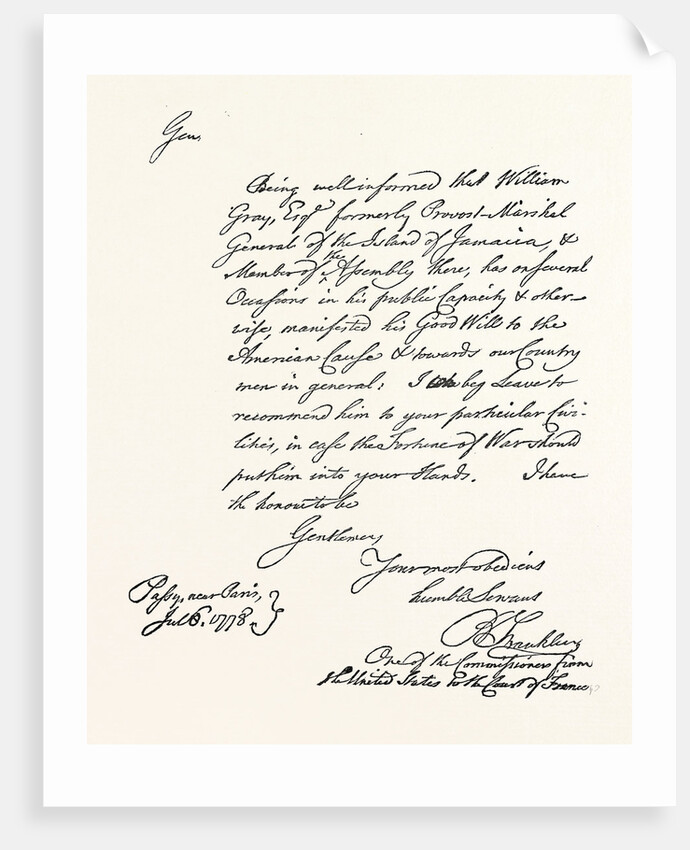 Gen,
Being well informed that William
Gray, Esqr formerly Provost-Marshal
General of the Island of Jamaica, &
Member of the Assembly there, has on several
Occasions in his public Capacity & other-
wise, manifested his Good Will to the
American Cause & towards our Country
men in general: I beg Leave to
recommend him to your particular Civi-
lities, in case the Fortune of War should
put him into your Hands. I have
the honour to be
Gentlemen,
Your most obedient
humble Servant
B Franklin
One of the Commissioners from
the United States to the Court of France
Passy, near Paris,
Jul 6. 1778.